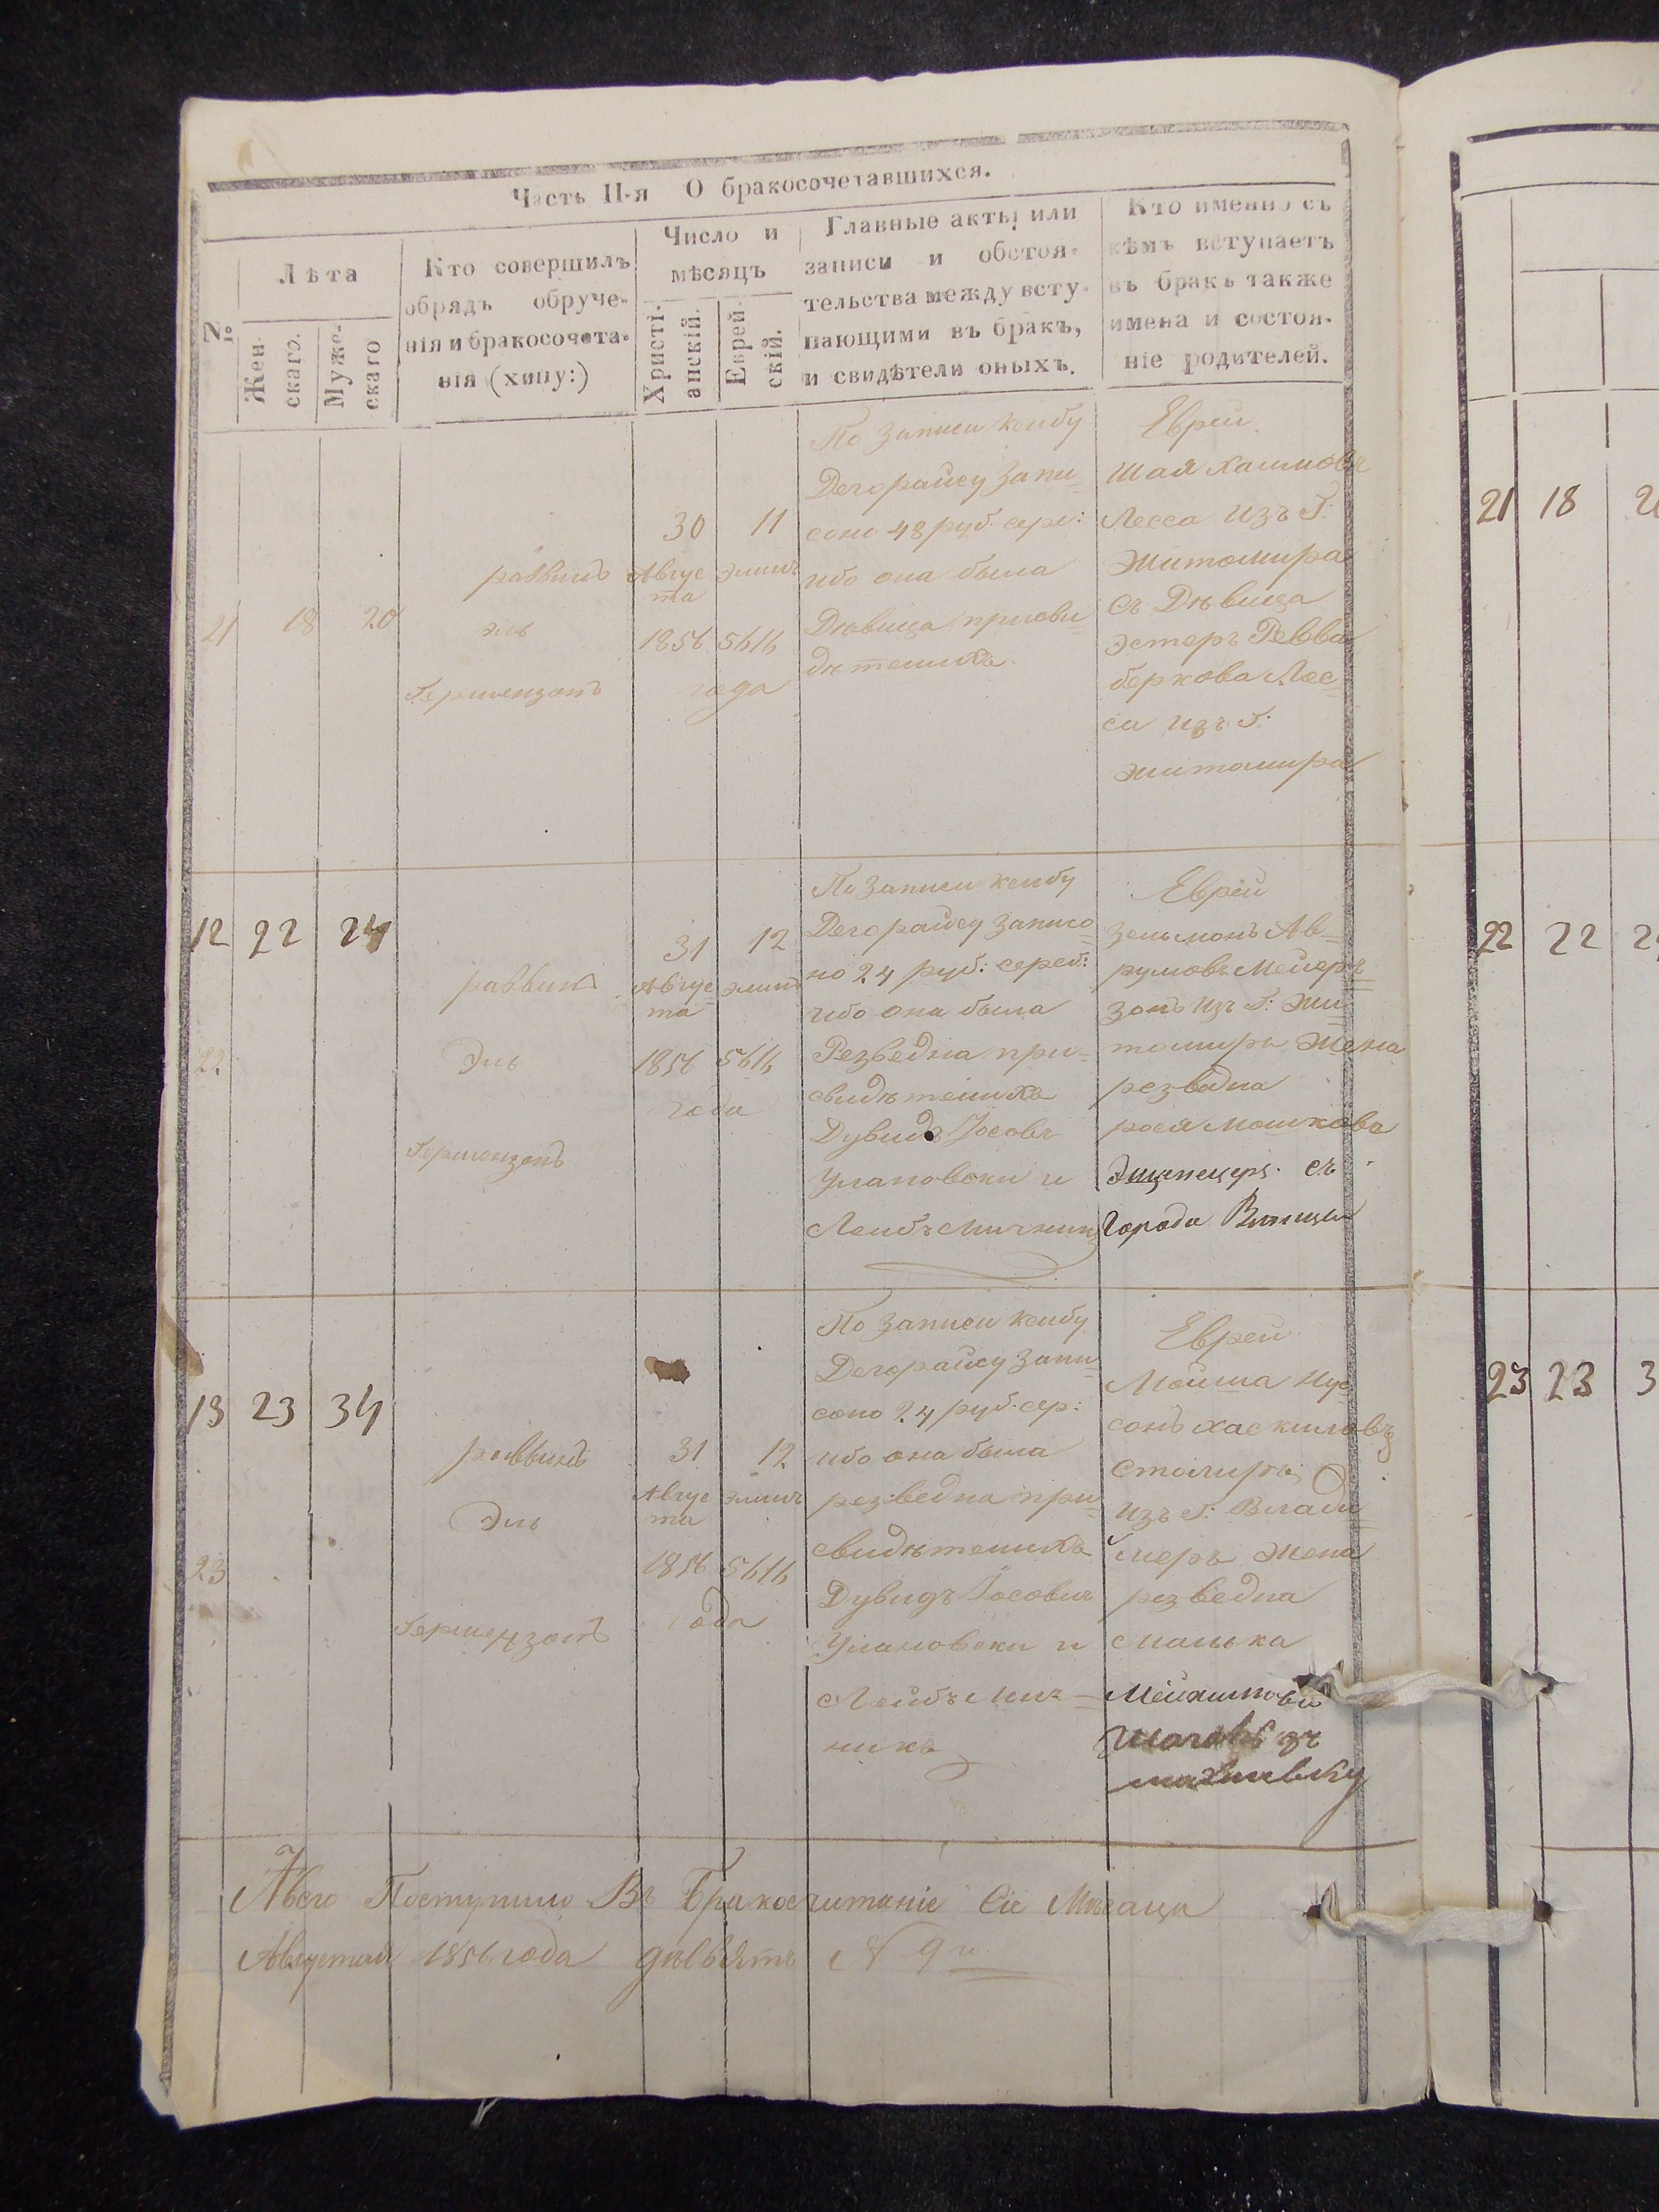 Часть II-я О бракосочетавшихся.
№
Лѣта
Жен-
скаго.
Муже-
скаго
Кто совершилъ
обрядъ обруче-
нія и бракосочета-
нія (хипу:)
Число и
мѣсяцъ
Христі-
анскій.
Еврей-
скій.
Главные акты или
записи и обстоя-
тельства между всту-
пающими въ бракъ,
и свидѣтели оныхъ.
Кто именно съ
кѣмъ вступаетъ
въ бракъ также
имена и состоя-
ніе родителей.
21 18 20
раввинъ
Эль
Гершензонъ
30 11
Авгус
та
1856 5616
года
По записи ксибу
Дегорайсу запи
сано 48 руб. сере:
ибо она была
Дѣвица присви
дѣтелихъ
Еврей
Шая Хаимовъ
Лесса изъ Г:
Житомира
съ Дѣвица
Эстеръ Ревва
беркова Лес-
са изъ Г:
Житомира
12 22 24
22
раввинъ
Эль
Гершензонъ
31 12
Авгус
та
1856 5616
года
По записи ксибу
Дегорайсу записо
но 24 руб: сереб:
ибо она была
Резведна при-
свидѣтелихъ
Дувидъ Іосовъ
Улановски и
Лейбъ Мичникъ
Еврей
Зельмонъ Ав-
румовъ Мейер
зонъ изъ Г: Жи
томиръ Жена
резведна
рося Мошкова
съ
Города
13 23 34
23
раввинъ
Эль
Гершензонъ
31 12
Авгус
та
1856 5616
года
По записи ксибу
Дегорайсу запи
сано 24 руб. сер:
ибо она была
резведна при
свидѣтелихъ
Дувидъ Іосовичъ
Улановски и
Лейбъ Мич-
никъ
Еврей
Мойша Нус
сонъ Хаскиловъ
Столиръ
изъ Г: Влади
меръ Жена
резведна
Малька
Авсго Поступило Въ Бракосчитаніе Сіе Мѣсаца
Августай 1856 года дѣвьять N 9
21 18 2
22 22 2
23 23 3